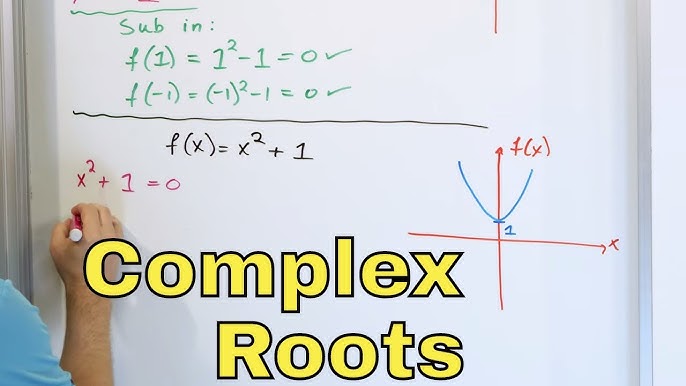 Sub in:
f(1) = 1² - 1 = 0 ✓
f(-1) = (-1)² - 1 = 0 ✓
f(x) = x² + 1
x² + 1 = 0
f(x)
1
x
Complex
Roots